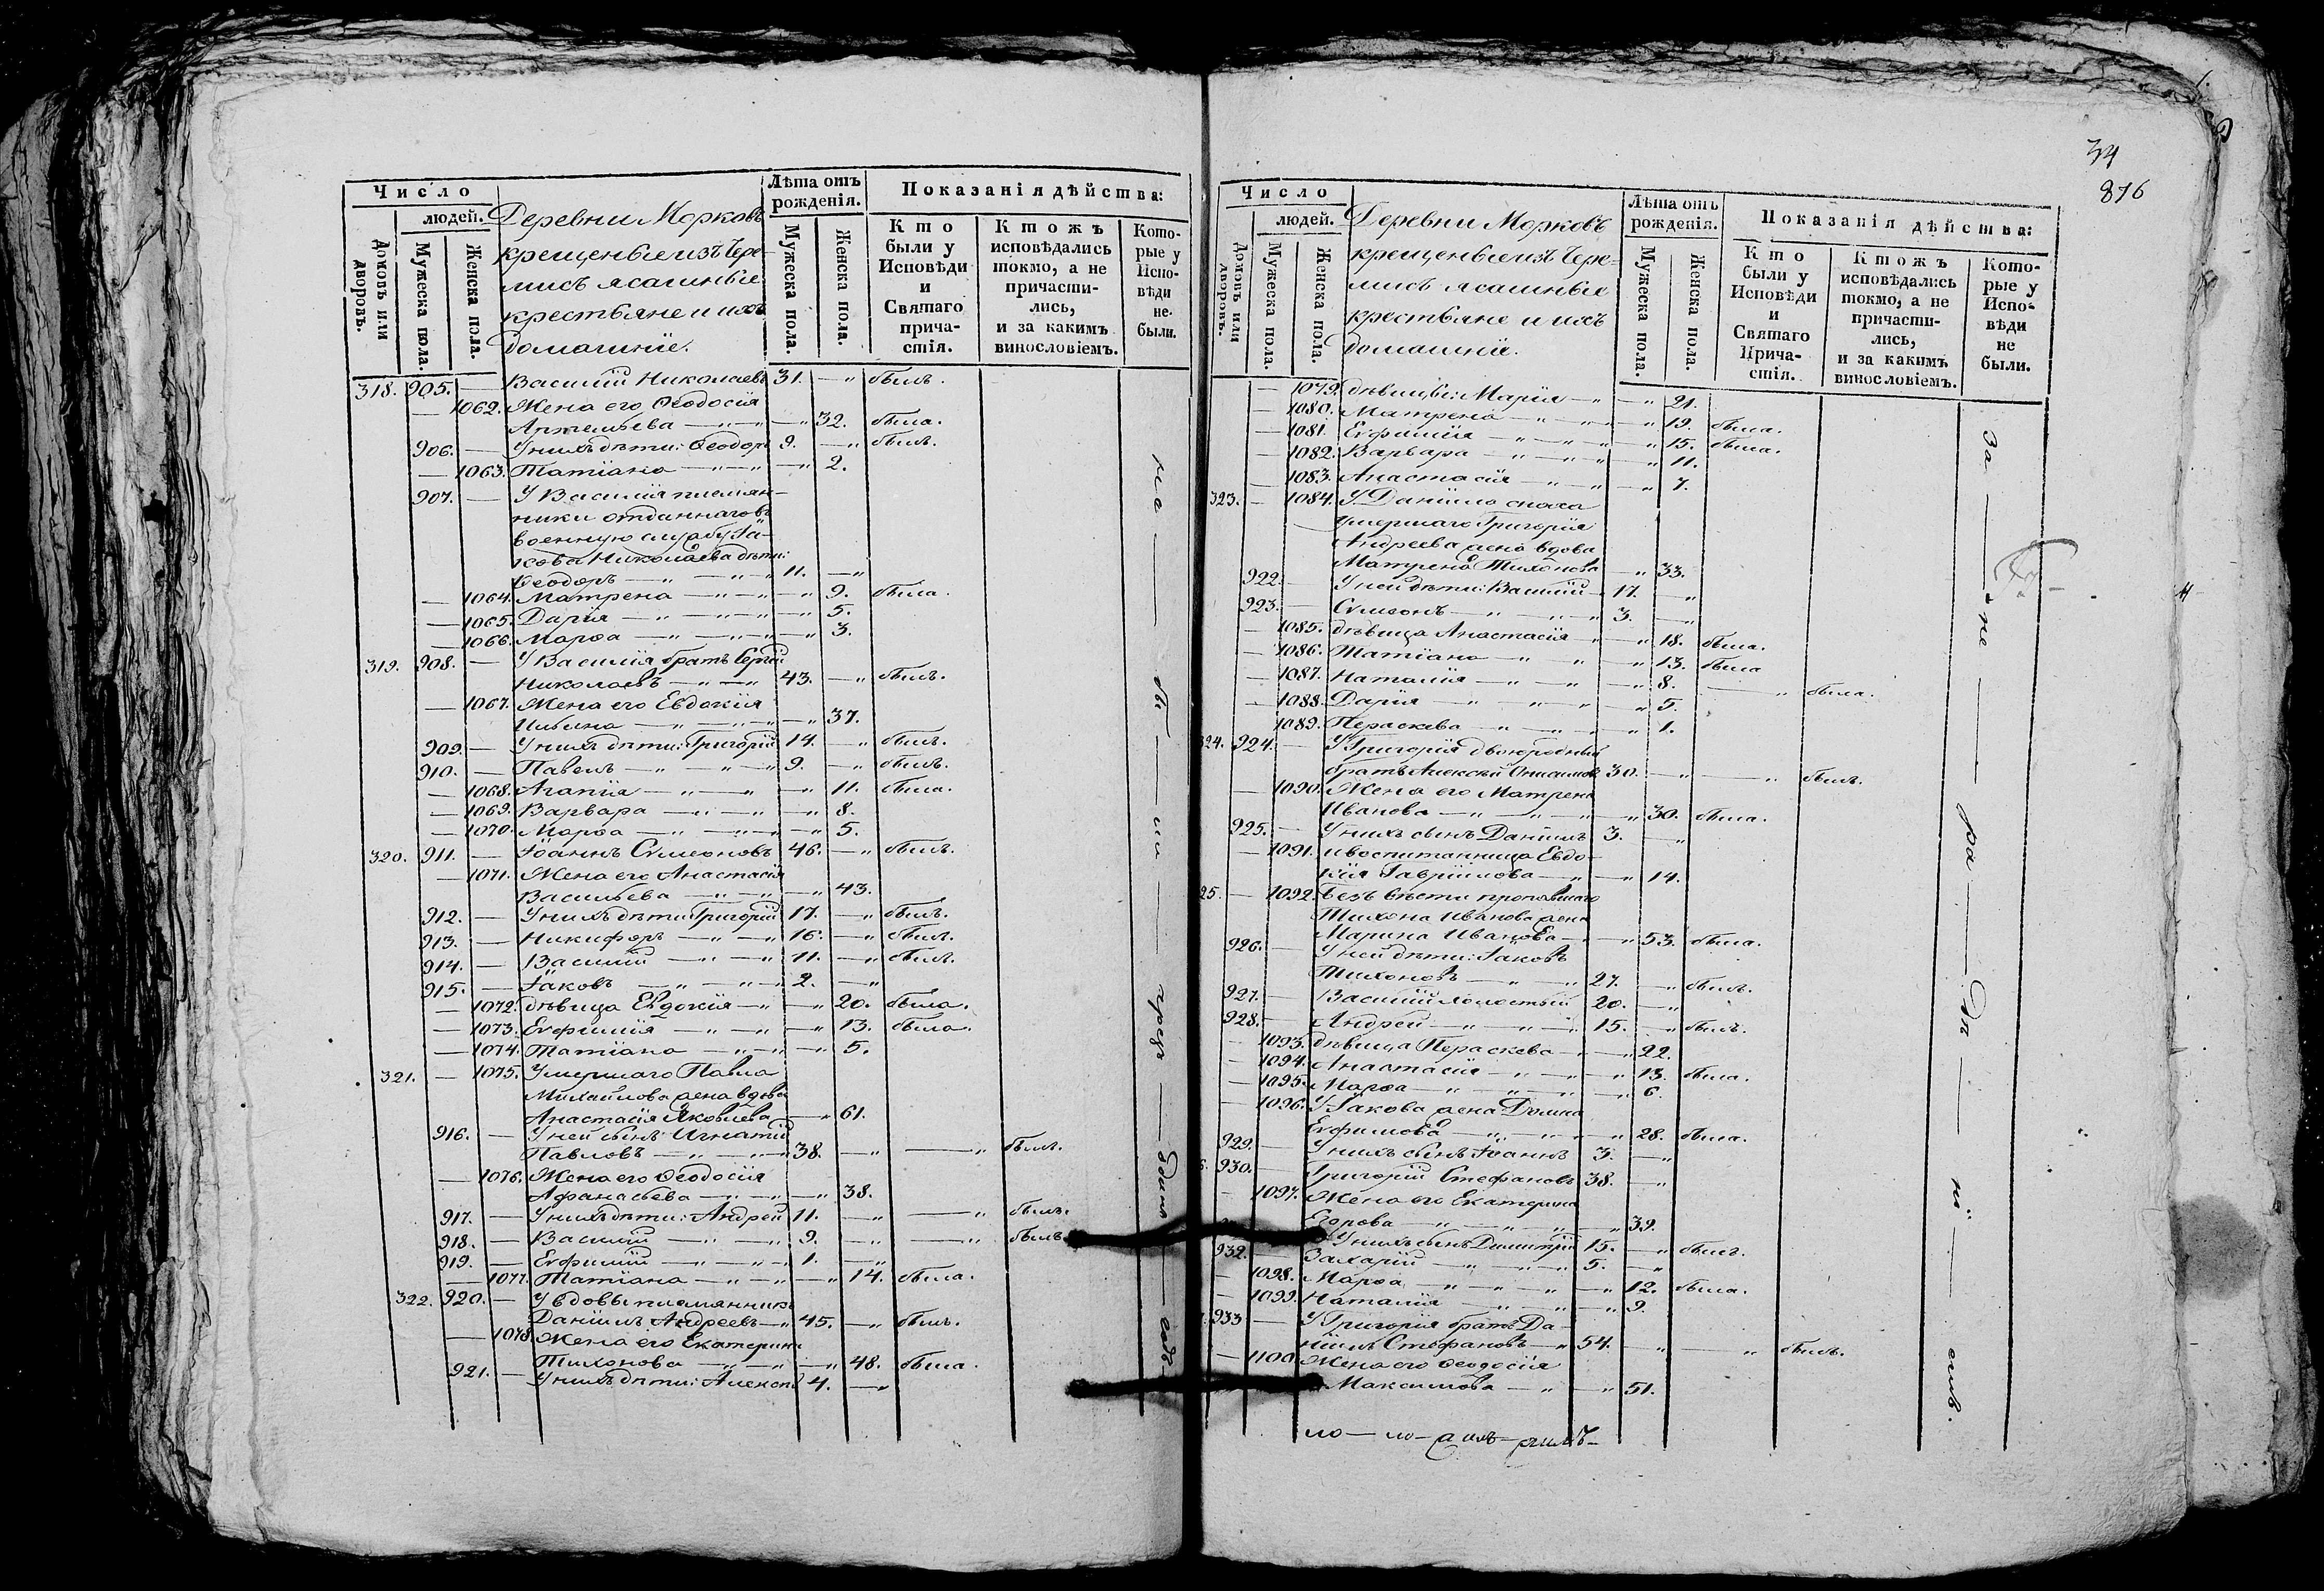 Число
людей.
Домовъ или дворовъ.
Мужеска пола.
Женска пола.
Деревни Морковъ
крещеныя изъ Чере-
мисъ ясашныя
крестьяне и ихъ
домашнїе.
Лѣта отъ
рожденїя.
Мужеска пола.
Женска пола.
Показанїя дѣйства:
Кто
были у
Исповѣди
и
Святаго
прича-
стїя.
Ктожъ
исповѣдались
токмо, а не
причасти-
лись,
и за какимъ
винословїемъ.
Кото-
рые у
Испо-
вѣди
не
были.
318. 905. — Василїй Николаевъ 31. — былъ.
— 1062. Жена его Ѳеодосїя
Артемьева — 32. была.
906. — У нихъ дѣти: Ѳеодоръ 9. — былъ.
— 1063. Татїана — 2.
907. — У Василїя племян-
ники отданнаго въ
военную службу Їа-
кова Николаева дѣти:
Ѳеодоръ — 11. —
— 1064. Матрена — 9. была.
— 1065. Дарїя — 5.
— 1066. Марѳа — 3.
319. 908. — У Василїя братъ Сергїй
Николаевъ — 43. — былъ.
— 1067. Жена его Евдокїя
Ильина — 37.
909. — У нихъ дѣти: Григорїй 14. — былъ.
910. — Павелъ — 9. — былъ.
— 1068. Агапїя — 11. была.
— 1069. Варвара — 8.
— 1070. Марѳа — 5.
320. 911. — Їоаннъ Сѵмеоновъ 46. — былъ.
— 1071. Жена его Анастасїя
Васильева — 43.
912. — У нихъ дѣти: Григорїй 17. — былъ.
913. — Никифоръ — 16. — былъ.
914. — Василїй — 11. — былъ.
915. — Їаковъ — 2. —
— 1072. дѣвица Евдокїя — 20. была.
— 1073. Евфимїя — 13. была.
— 1074. Татїана — 5.
321. — 1075. Умершаго Павла
Михайлова жена вдова
Анастасїя Яковлева — 61.
916. — У ней сынъ Игнатїй
Павловъ — 38. — былъ.
— 1076. Жена его Ѳеодосїя
Афанасьева — 38.
917. — У нихъ дѣти: Андрей 11. — былъ.
918. — Василїй — 9. — былъ.
919. — Евфимїй — 1. —
— 1077. Татїана — 14. была.
322. 920. — У вдовы племянникъ
Данїилъ Андреевъ — 45. — былъ.
— 1078. Жена его Екатерина
Тихонова — 48. была.
921. — У нихъ дѣти: Алексѣй 4. —
34
876
Число
людей.
Домовъ или дворовъ.
Мужеска пола.
Женска пола.
Деревни Морковъ
крещеныя изъ Чере-
мисъ ясашныя
крестьяне и ихъ
домашнїе.
Лѣта отъ
рожденїя.
Мужеска пола.
Женска пола.
Показанїя дѣйства:
Кто
были у
Исповѣди
и
Святаго
Прича-
стїя.
Ктожъ
исповѣдались
токмо, а не
причасти-
лись,
и за какимъ
винословїемъ.
Кото-
рые у
Испо-
вѣди
не
были.
— 1079. дѣвицы: Марїя — 21.
— 1080. Матрена — 19. была.
— 1081. Евфимїя — 15. была.
— 1082. Варвара — 11.
— 1083. Анастасїя — 7.
323. — 1084. У Данїила сноха
умершаго Григорїя
Андреева жена вдова
Матрена Тихонова — 33.
922. — У ней дѣти: Василїй 17. —
923. — Сѵмеонъ — 3. —
— 1085. дѣвица Анастасїя — 18. была.
— 1086. Татїана — 13. была
— 1087. Наталїя — 8. — была.
— 1088. Дарїя — 5.
1089. Параскева — 1.
324. 924. — У Григорїя двоюродный
братъ Алексѣй 30. — былъ.
— 1090. Жена его Матрена
Иванова — 30. была.
925. — У нихъ сынъ Данїилъ 3. —
— 1091. и воспитанница Евдо-
кїя Гаврїилова — 14.
25. — 1092. Безъ вѣсти пропавшаго
Тихона Иванова жена
Марина Иванова — 53. была.
926. — У ней дѣти: Їаковъ
Тихоновъ — 27. — былъ.
927. — Василїй холостый 20. —
928. — Андрей — 15. — былъ.
— 1093. дѣвица Параскева — 22.
— 1094. Анастасїя — 13. была.
— 1095. Марѳа — 6.
— 1096. У Їакова жена Домна
Евфимова — 28. была.
929. — У нихъ сынъ Їоаннъ 3. —
930. — Григорїй Стефановъ 38. —
— 1097. Жена его Екатерина
Егорова — 39.
У нихъ сынъ Димитрїй 15. — былъ.
932. — Захарїй — 5. —
— 1098. Марѳа — 12. была.
— 1099. Наталїя — 9.
933 — У Григорїя братъ Да-
нїилъ Стефановъ — 54. — былъ.
— 1100. Жена его Ѳеодосїя
Максимова — 51.